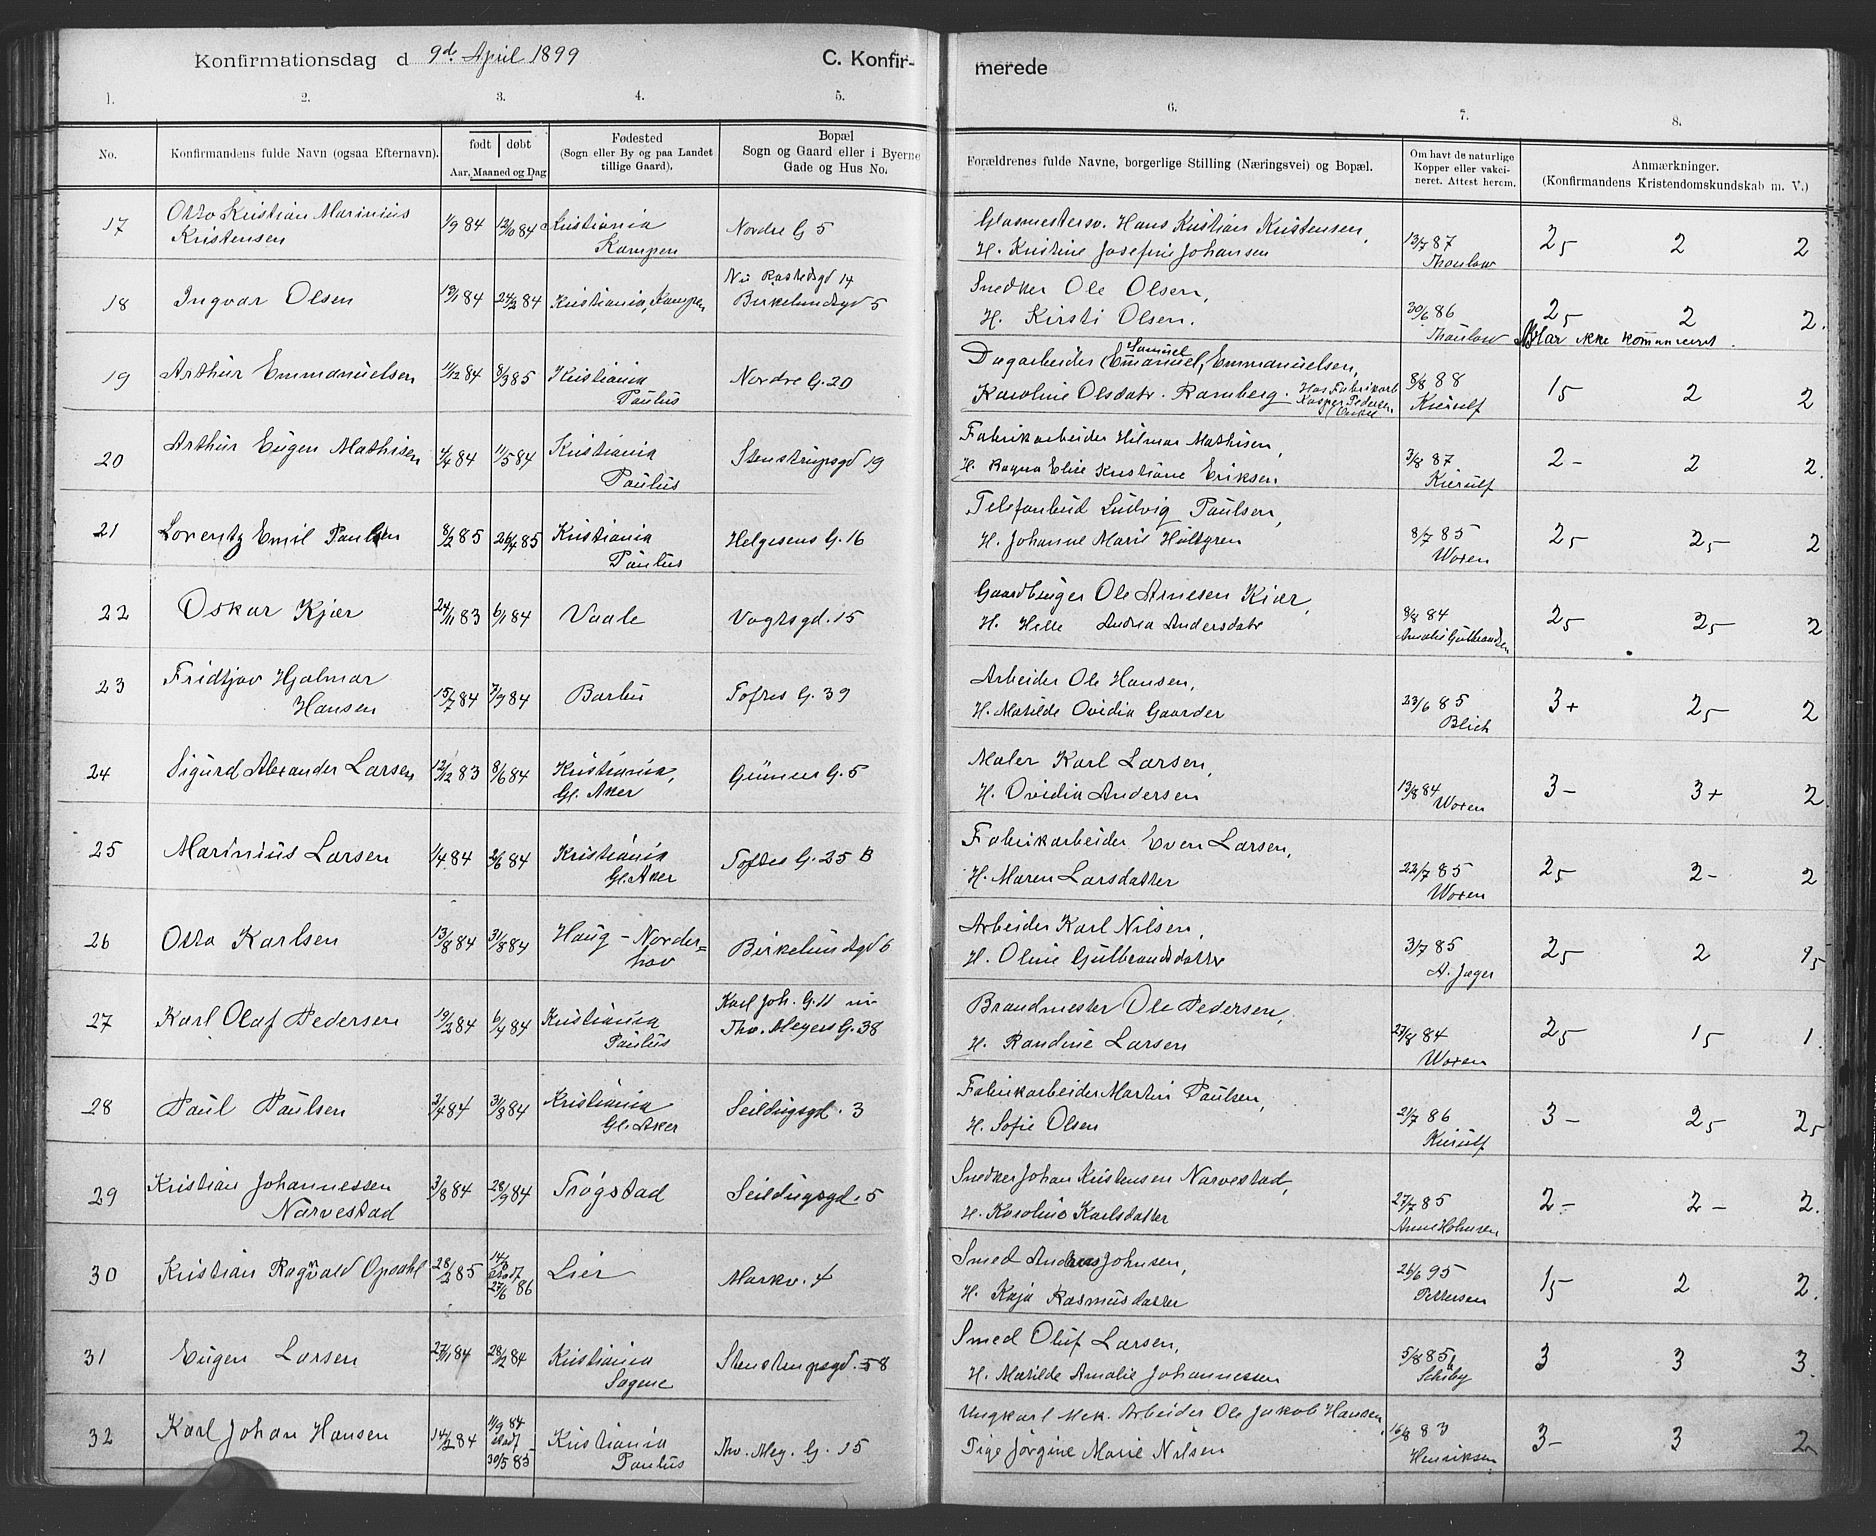 Konfirmationsdag d 9de April 1899 C. Konfir- merede
1. 2. 3. 4. 5. 6. 7. 8.
No.
Konfirmandens fulde Navn (ogsaa Efternavn).
født døbt
Aar, Maaned og Dag
Fødested
(Sogn eller By og paa Landet
tillige Gaard).
Bopæl
Sogn og Gaard eller i Byerne
Gade og Hus No.
Forældrenes fulde Navne, borgerlige Stilling (Næringsvei) og Bopæl.
Om havt de naturlige
Kopper eller vakci-
neret. Attest herom.
Anmærkninger.
(Konfirmandens Kristendomskundskab m. V.)
17 Otto Kristian Marinius
Kristensen
1/9 84 12/10 84
Kristiania
Kampen
Nordre G 5
Glasmestersv. Hans Kristian Kristensen,
H. Kristine Josefine Johansen
13/7 87
Thaulow
25 2 2
18 Ingvar Olsen
13/1 84 24/2 84
Kristiania, Kampen
Nu Rostedsgd 14
Birkelundsgd 5
Snedker Ole Olsen,
H. Kirsti Olsen.
30/6 86
Thaulow
25 2 2.
Har ikke kommuniceret.
19 Arthur Emmanuelsen
11/12 84 8/3 85
Kristiania
Paulus
Nordre G. 20
Dagarbeider Emanuel Samuel, Emmanuelsen,
Karoline Olsdatr. Ramberg. Hos Fabrikarb.
Kasper Pedersen
Onkel
8/8 88
Kierulf
15 2 2
20 Arthur Eugen Mathisen
4/4 84 11/5 84
Kristiania
Paulus
Stenstrupsgd 19
Fabrikarbeider Hilmar Mathisen,
H. Ragna Elise Kristiane Eriksen
3/8 87
Kierulf
2- 2 2.
21 Lorentz Emil Paulsen
8/2 85 26/4 85
Kristiania
Paulus
Helgesens G. 16
Telefonbud Ludvig Paulsen,
H. Johanne Marie Hultgren
8/7 85
Woxen
25 25- 2
22 Oskar Kjær
24/11 83 6/1 84
Vaale
Vogtsgd. 15
Gaardbruger Ole Arnesen Kiær,
H. Helle Andrea Andersdatr
8/8 84
Amalie Gulbrandsen
25 25- 2
23 Fridtjov Hjalmar
Hansen
15/7 84 7/9 84
Barbu
Toftes G. 39
Arbeider Ole Hansen,
H. Matilde Ovidia Gaarder
23/6 85
Blich
3+ 25- 2
24 Sigurd Alexander Larsen
12/12 83 8/6 84
Kristiania,
Gl. Aker
Grüners G. 5
Maler Karl Larsen,
H. Ovidia Andersen
13/8 84
Woxen
3- 3+ 2.
25 Marinius Larsen
1/4 84 2/6 84
Kristiania
Gl. Aker
Toftes G. 25 B
Fabrikarbeider Even Larsen,
H. Maren Larsdatter
22/7 85
Woxen
25 2- 2
26 Otto Karlsen
13/8 84 31/8 84
Haug - Norder=
hov
Birkelundsgd 6
Arbeider Karl Nilsen,
H. Oline Gulbrandsdatter
3/7 85
A. Jager
25 2 15
27 Karl Olaf Pedersen
19/2 84 6/4 84
Kristiania
Paulus
Karl Joh. G. 11 nu
Thv. Meyers G. 38
Brandmester Ole Pedersen,
H. Randine Larsen
27/8 84
Woxen
25 15 1.
28 Paul Paulsen
3/4 84 31/8 84
Kristiania
Gl. Aker
Seildugsgd. 3
Fabrikarbeider Martin Paulsen,
H. Sofie Olsen
21/7 86
Kierulf
3- 25 25
29 Kristian Johannessen
Narvestad
3/8 84 28/9 84
Trøgstad
Seildugsgd. 5
Snedker Johan Kristensen Narvestad,
H. Karoline Karlsdatter
27/7 85
2- 2- 2.
30 Kristian Ragnvald Opsahl
28/2 85 14/6 stadf 27/6 86
Lier
Markv. 4
Smed Andreas Johnsen,
H. Kaja Rasmusdatter
26/6 95
Pettersen
15 2 2.
31 Eugen Larsen
27/11 84 28/12 84
Kristiania
Sagene
Stenstrupsgd. 58
Smed Oluf Larsen,
H. Matilde Amalie Johannessen
5/8 85
Schiby
3 3 3.
32 Karl Johan Hansen
14/2 84 11/9 84 stadf 30/5 85
Kristiania
Paulus
Thv. Mey. G. 15
Ungkarl Mek. Arbeider Ole Jakob Hansen,
Pige Jørgine Marie Nilsen
16/8 83
Henriksen
3- 3 2-